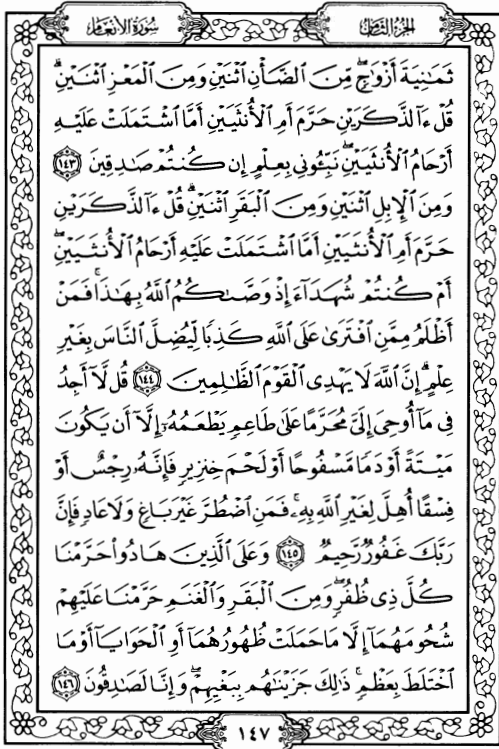 سورة الأنعام
الجزء الثامن
ثَمَٰنِيَةَ أَزْوَٰجٍۖ مِّنَ ٱلضَّأْنِ ٱثْنَيْنِ وَمِنَ ٱلْمَعْزِ ٱثْنَيْنِۗ
قُلْ ءَآلذَّكَرَيْنِ حَرَّمَ أَمِ ٱلْأُنثَيَيْنِ أَمَّا ٱشْتَمَلَتْ عَلَيْهِ
أَرْحَامُ ٱلْأُنثَيَيْنِۖ نَبِّـُٔونِى بِعِلْمٍ إِن كُنتُمْ صَٰدِقِينَ ١٤٣
وَمِنَ ٱلْإِبِلِ ٱثْنَيْنِ وَمِنَ ٱلْبَقَرِ ٱثْنَيْنِۗ قُلْ ءَآلذَّكَرَيْنِ
حَرَّمَ أَمِ ٱلْأُنثَيَيْنِ أَمَّا ٱشْتَمَلَتْ عَلَيْهِ أَرْحَامُ ٱلْأُنثَيَيْنِۖ
أَمْ كُنتُمْ شُهَدَآءَ إِذْ وَصَّىٰكُمُ ٱللَّهُ بِهَٰذَاۚ فَمَنْ
أَظْلَمُ مِمَّنِ ٱفْتَرَىٰ عَلَى ٱللَّهِ كَذِبًا لِّيُضِلَّ ٱلنَّاسَ بِغَيْرِ
عِلْمٍۗ إِنَّ ٱللَّهَ لَا يَهْدِى ٱلْقَوْمَ ٱلظَّٰلِمِينَ ١٤٤ قُل لَّآ أَجِدُ
فِى مَآ أُوحِىَ إِلَىَّ مُحَرَّمًا عَلَىٰ طَاعِمٍ يَطْعَمُهُۥٓ إِلَّآ أَن يَكُونَ
مَيْتَةً أَوْ دَمًا مَّسْفُوحًا أَوْ لَحْمَ خِنزِيرٍ فَإِنَّهُۥ رِجْسٌ أَوْ
فِسْقًا أُهِلَّ لِغَيْرِ ٱللَّهِ بِهِۦۚ فَمَنِ ٱضْطُرَّ غَيْرَ بَاغٍ وَلَا عَادٍ فَإِنَّ
رَبَّكَ غَفُورٌ رَّحِيمٌ ١٤٥ وَعَلَى ٱلَّذِينَ هَادُوا۟ حَرَّمْنَا
كُلَّ ذِى ظُفُرٍۖ وَمِنَ ٱلْبَقَرِ وَٱلْغَنَمِ حَرَّمْنَا عَلَيْهِمْ
شُحُومَهُمَآ إِلَّا مَا حَمَلَتْ ظُهُورُهُمَآ أَوِ ٱلْحَوَايَآ أَوْ مَا
ٱخْتَلَطَ بِعَظْمٍۚ ذَٰلِكَ جَزَيْنَٰهُم بِبَغْيِهِمْۖ وَإِنَّا لَصَٰدِقُونَ ١٤٦
١٤٧